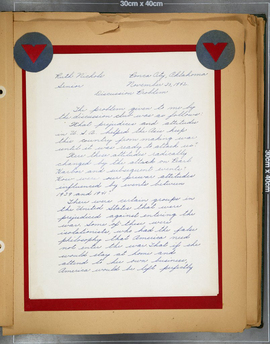 30cm x 40cm
Ruth Nichols Ponca City, Oklahoma
Senior November 21, 1942
Discussion Problem
The problem given to me by
the discussion club was as follows:
"What prejudices and attitudes
in U. S. A. helped the Axis keep
this country from making war
until it was ready to attack us?
"How these attitudes radically
changed by the attack on Pearl
Harbor and subsequent events.
How were our former attitudes
influenced by events between
1939 and 1941."
There were certain groups in
the United States that were
prejudiced against entering the
war. Some of these were
isolationists, who had the false
philosophy that America need
not enter the war. That if she
would stay at home and
attend to her own business,
America would be left perfectly
30cm x 40cm